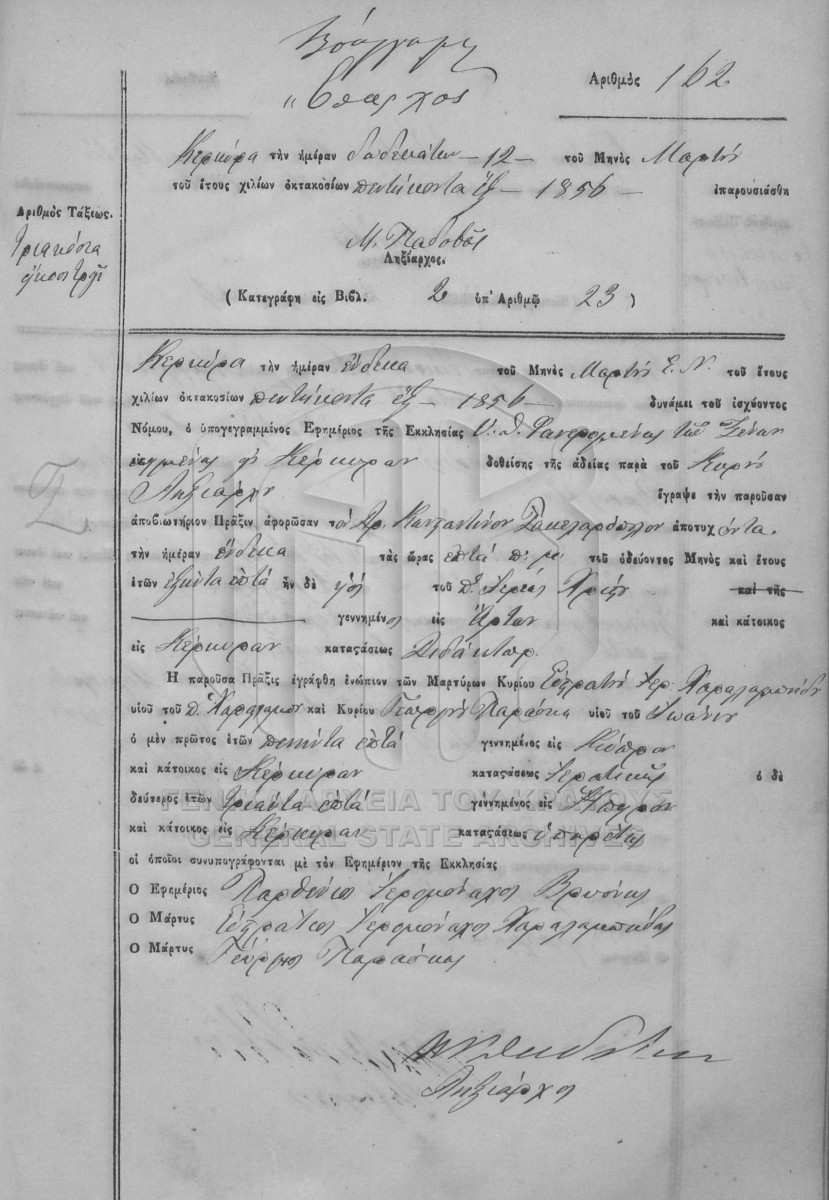 Ὁ Ἔπαρχος
Ἀριθμὸς 162
Κερκύρα τὴν ἡμέραν δωδεκάτην - 12 - τοῦ Μηνὸς Μαρτίου
τοῦ ἔτους χιλίων ὀκτακοσίων πεντήκοντα ἕξ - 1856 - ἐπαρουσιάσθη
Ἀριθμὸς Τάξεως.
Τριακόσια
εἴκοσι τρία
Μ. Παδοβᾶς
Ληξίαρχος.
( Κατεγράφη εἰς Βιβλ. 2 ὑπ' Ἀριθμῷ 23 )
Κερκύρα τὴν ἡμέραν ἕνδεκα τοῦ Μηνὸς Μαρτίου Ε. Ν. τοῦ ἔτους
χιλίων ὀκτακοσίων πεντήκοντα ἕξ - 1856 - δυνάμει τοῦ ἰσχύοντος
Νόμου, ὁ ὑπογεγραμμένος Ἐφημέριος τῆς Ἐκκλησίας Υ. Θ. Φανερωμένης τῶν Ξένων
εἰς Κέρκυραν δοθείσης τῆς ἀδείας παρὰ τοῦ Κυρίου
Ληξιάρχου ἔγραψε τὴν παροῦσαν
ἀποβιωτήριον Πρᾶξιν ἀφορῶσαν τὸν Κωνσταντῖνον Σακελαρόπουλον ἀποτυχόντα
τὴν ἡμέραν ἕνδεκα τὰς ὥρας ἑπτά π. μ. τοῦ ὁδεύοντος Μηνὸς καὶ ἔτους
ἐτῶν ἑξήντα ἑπτά ἦν δὲ υἱός τοῦ π. Ἱερέως Χρίστου καὶ τῆς
γεννημένος εἰς Ἄρταν καὶ κάτοικος
εἰς Κέρκυραν καταςάσεως Διδάκτωρ.
Ἡ παροῦσα Πρᾶξις ἐγράφθη ἐνώπιον τῶν Μαρτύρων Κυρίου Εὐςρατίου Ἱερ. Χαραλαμπίδου
υἱοῦ τοῦ π. Χαραλάμπου καὶ Κυρίου Γεωργίου Παράσκα υἱοῦ τοῦ Ἰωάννου
ὁ μὲν πρῶτος ἐτῶν πενήντα ἑπτά γεννημένος εἰς Κύπρον
καὶ κάτοικος εἰς Κέρκυραν καταςάσεως Ἱερατικῆς ὁ δὲ
δεύτερος ἐτῶν τριάντα ἑπτά γεννημένος εἰς Ἤπειρον
καὶ κάτοικος εἰς Κέρκυραν καταςάσεως ὑπηρέτης
οἱ ὁποῖοι συνυπογράφονται μὲ τὸν Ἐφημέριον τῆς Ἐκκλησίας
Ὁ Ἐφημέριος Παρθένιος Ἱερομόναχος Βρυώνης
Ὁ Μάρτυς Εὐςράτιος Ἱερομόναχος Χαραλαμπίδης
Ὁ Μάρτυς Γεώργιος Παράσκας
Ληξίαρχος
ΓΕΝΙΚΑ ΑΡΧΕΙΑ ΤΟΥ ΚΡΑΤΟΥΣ
GENERAL STATE ARCHIVES